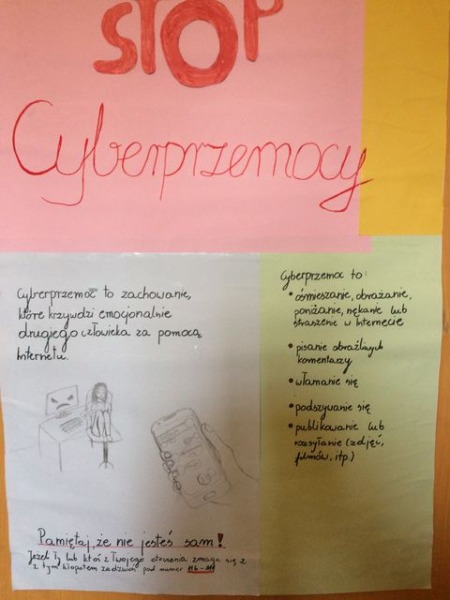 STOP
Cyberprzemocy
Cyberprzemoc to zachowanie,
które krzywdzi emocjonalnie
drugiego człowieka za pomocą
Internetu.
Pamiętaj, że nie jesteś sam!
Jeżeli Ty lub ktoś z Twojego otoczenia zmaga się z
z tym kłopotem zadzwoń pod numer 116-111
Cyberprzemoc to:
• ośmieszanie, obrażanie,
poniżanie, nękanie lub
straszenie w Internecie
• pisanie obraźliwych
komentarzy
• włamanie się
• podszywanie się
• publikowanie lub
rozsyłanie (zdjęć,
filmów, itp.)